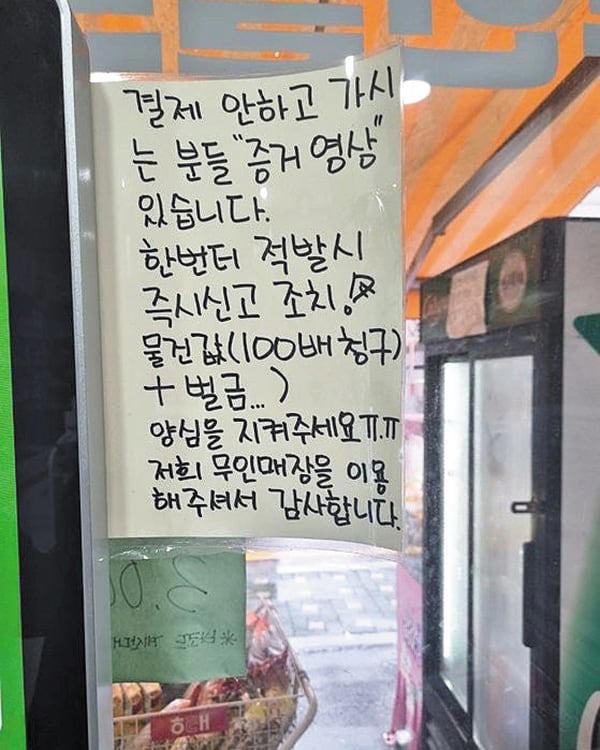 결제 안하고 가시
는 분들 "증거 영상"
있습니다.
한번더 적발시
즉시신고 조치!
물건값(100배 청구)
+ 벌금...)
양심을 지켜주세요ㅠ.ㅠ
저희 무인매장을 이용
해주셔서 감사합니다.
3.00
해태